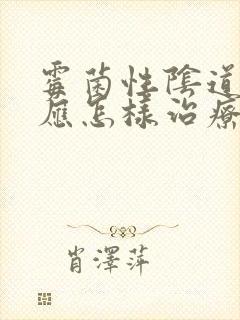 霉菌性陰道
應怎樣治療
肖澤萍